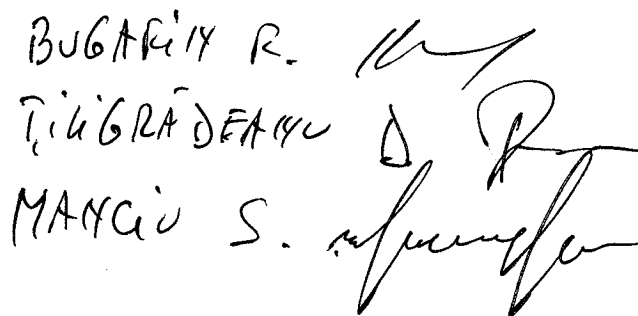 BUGARiN R.
ȚiNiGRĂDEANU D
MANCiU S.